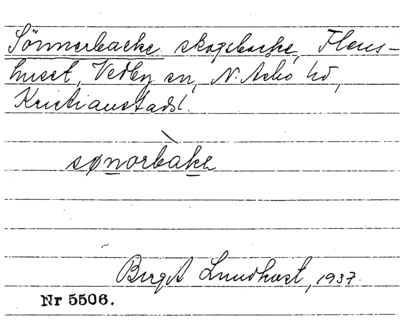 Sönnerbacke skogsbacke, Flens-
huset, Vedby sn, N. Åsbo hd,
Kristianstads l.
sønorbake
Birgit Lundkvist, 1937.
Nr 5506.